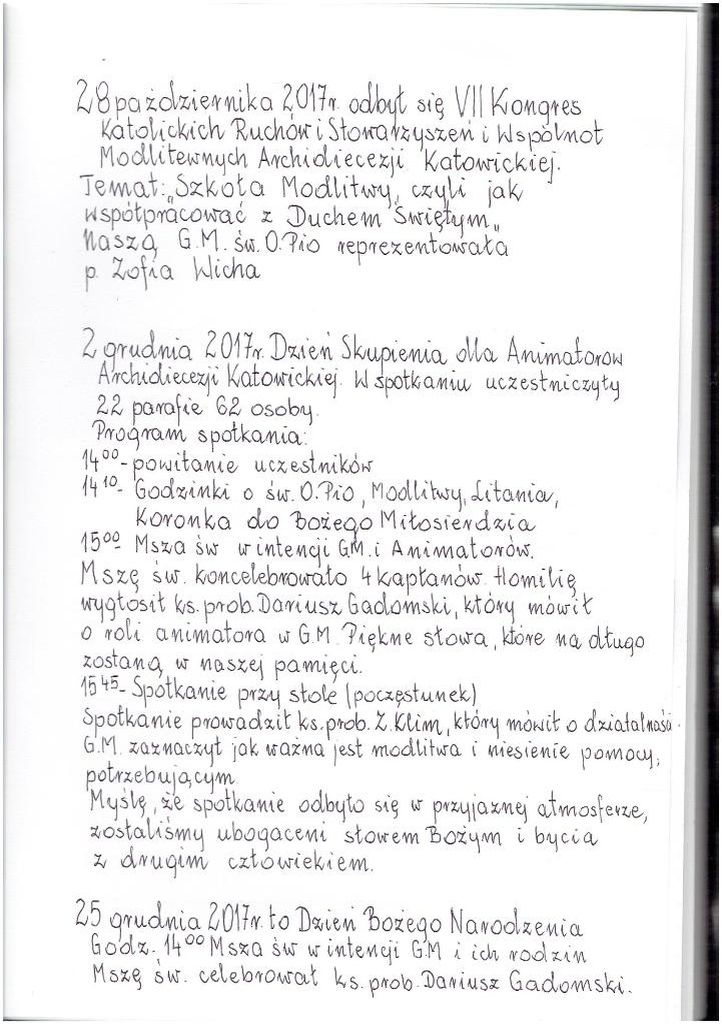 28 października 2017r. odbył się VII Kongres
Katolickich Ruchów i Stowarzyszeń i Wspólnot
Modlitewnych Archidiecezji Katowickiej.
Temat: „Szkoła Modlitwy, czyli jak
współpracować z Duchem Świętym„
Naszą G.M. św. O. Pio reprezentowała
p. Zofia Wicha
2 grudnia 2017r. Dzień Skupienia dla Animatorow
Archidiecezji Katowickiej. W spotkaniu uczestniczyły
22 parafie 62 osoby.
Program spotkania:
14⁰⁰- powitanie uczestników
14¹⁰- Godzinki o św. O. Pio, Modlitwy, Litania,
Koronka do Bożego Miłosierdzia
15⁰⁰- Msza św w intencji GM. i Animatorów.
Mszę św. koncelebrowało 4 kapłanów. Homilię
wygłosił ks. prob. Dariusz Gadomski, który mówił
o roli animatora w G.M. Piękne słowa, które na długo
zostaną w naszej pamięci.
15⁴⁵- Spotkanie przy stole (poczęstunek)
Spotkanie prowadził ks. prob. Z. Klim, który mówił o działalności
G.M. zaznaczył jak ważna jest modlitwa i niesienie pomocy,
potrzebującym
Myślę, że spotkanie odbyło się w przyjaznej atmosferze,
zostaliśmy ubogaceni słowem Bożym i bycia
z drugim człowiekiem.
25 grudnia 2017r. to Dzień Bożego Narodzenia
Godz. 14⁰⁰ Msza św w intencji GM i ich rodzin
Mszę św. celebrował ks. prob. Dariusz Gadomski.